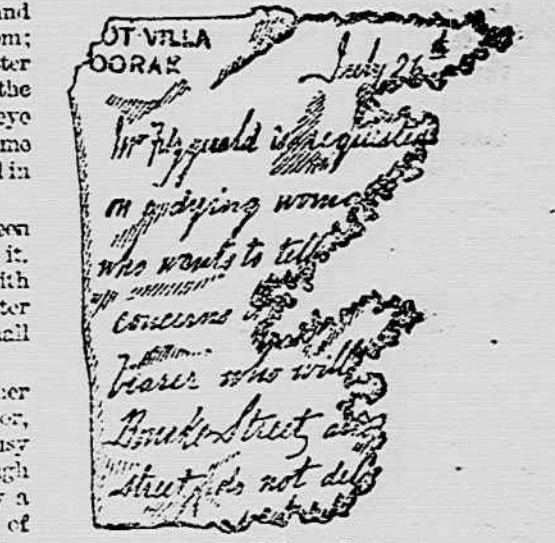 and
om;
ter
the
eye
me
l in
een
it.
ith
ter
all
her
or,
usy
ugh
y a
of
OT VILLA
OORAK
July 26th
Mr Fitzgerald is requested
on a dying woma
who wants to tell
concerns
bearer who will
Bourke Street, an
street do not dela